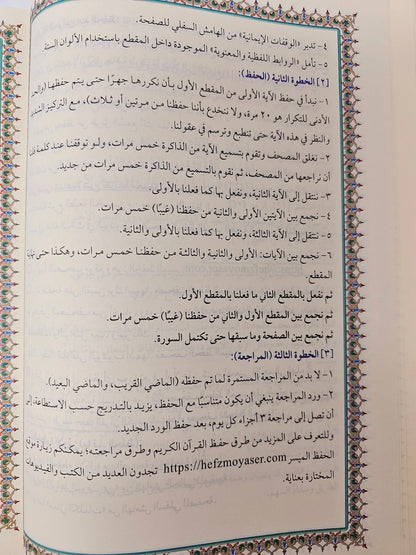 ٤- تدبر «الوقفات الإيمانية» من الهامش السفلي للصفحة.
٥- تأمل «الروابط اللفظية والمعنوية» الموجودة داخل المقطع باستخدام الألوان الستة
[٢] الخطوة الثانية (الحفظ):
١- نبدأ في حفظ الآية الأولى من المقطع الأول بأن نكررها جهرًا حتى يتم حفظها (والحد
الأدنى للتكرار هو ٢٠ مرة، ولا ننخدع بأننا حفظنا من مرتين أو ثلاث)، مع التركيز الشديد
والنظر في هذه الآية حتى تنطبع وترسم في عقولنا.
٢- نغلق المصحف ونقوم بتسميع الآية من الذاكرة خمس مرات، ولو توقفنا عند كلمة
أن نراجعها من المصحف، ثم نقوم بالتسميع من الذاكرة خمس مرات من جديد.
٣- ننتقل إلى الآية الثانية، ونفعل بها كما فعلنا بالأولى.
٤- نجمع بين الآيتين الأولى والثانية من حفظنا (غيبًا) خمس مرات.
٥- ننتقل إلى الآية الثالثة، ونفعل بها كما فعلنا بالأولى والثانية.
٦- نجمع بين الآيات: الأولى والثانية والثالثة من حفظنا خمس مرات، وهكذا حتى نهاية
المقطع.
ثم نفعل بالمقطع الثاني ما فعلنا بالمقطع الأول.
ثم نجمع بين المقطع الأول والثاني من حفظنا (غيبًا) خمس مرات.
ثم نجمع بين الصفحة وما سبقها حتى تكتمل السورة.
[٣] الخطوة الثالثة (المراجعة):
١- لا بد من المراجعة المستمرة لما تم حفظه (الماضي القريب، والماضي البعيد).
٢- ورد المراجعة ينبغي أن يكون متناسبًا مع الحفظ، يزيد بالتدريج حسب الاستطاعة، إلى
أن تصل إلى مراجعة ٣ أجزاء كل يوم، بعد حفظ الورد الجديد.
وللتعرف على المزيد من طرق حفظ القرآن الكريم وطرق مراجعته؛ يمكنكم زيارة موقع
الحفظ الميسر https://hefzmoyaser.com تجدون العديد من الكتب والفيديوهات
المختارة بعناية.